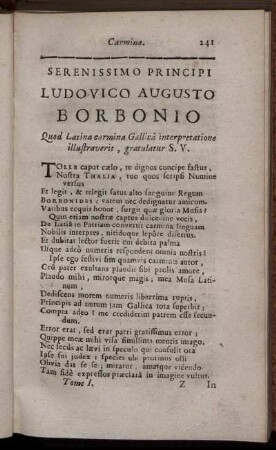 Carmina. 241
SERENISSIMO PRINCIPI
LUDOVICO AUGUSTO
BORBONIO
Quod Latina carmina Gallicâ interpretatione
illustraverit, gratulatur S. V.
TOLLE caput cælo, te dignos concipe fastus,
Nostra THALIA, tuo quos scripsi Numine
versus
Et legit, & relegit satus alto sanguine Regum
BORBONIDAS: vatem nec dedignatur amicum.
Vatibus ecquis honor, surgit quæ gloria Musæ?
Quin etiam nostræ captus dulcedine vocis,
De Latiâ in Patriam convertit carmina linguam
Nobilis interpres, nitidoque lepôre disertus.
Et dubitas lector fueris cui debita palma
Usque adeò numeris respondent omnia nostris!
Ipse ego festivi sim quamvis carminis autor,
Ceu pater exultans plaudit sibi prolis amore,
Plaudo mihi, mirorque magis, mea Musa Lati-
num,
Dedisceus morem numeris liberrima ruptis,
Principis ad nutum jam Gallica tota superbit:
Compta adeo! me crediderim patrem esse secun-
dum.
Error erat, sed erat patri gratissimus error;
Quippe meæ mihi visa simillima mentis imago.
Nec secùs ac lævi in speculo qui consulit ora
Ipse sui judex: species ubi protinus olli
Obvia dat se se; miratur, amatque videndo
Tam fidè expressos præclarâ in imagine vultus.
Tome I. Z In